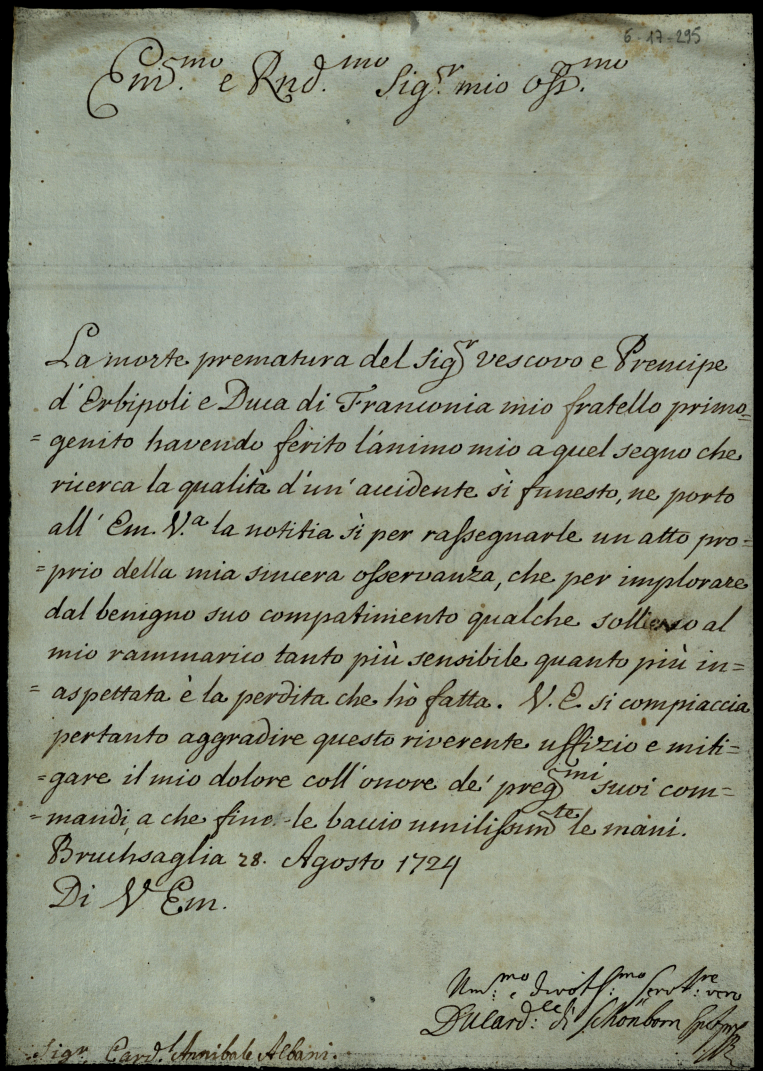 6-17-295
Em.mo e Rnd.mo Sig.r mio oss.mo
La morte prematura del Sig.r Vescovo e Prencipe
d'Erbipoli e Duca di Franconia mio fratello primo=
=genito havendo ferito l'animo mio a quel segno che
ricerca la qualità d'un'accidente sì funesto, ne porto
all'Em. V.a la notitia sì per rassegnarle un atto pro=
=prio della mia sincera osservanza, che per implorare
dal benigno suo compatimento qualche sollievo al
mio rammarico tanto più sensibile quanto più in=
=aspettata è la perdita che hò fatta. V. E. si compiaccia
pertanto aggradire questo riverente uffizio e miti=
=gare il mio dolore coll'onore de' preg.mi suoi com=
=mandi, a che fine le baccio umilissim.te le mani.
Bruchsaglia 28. Agosto 1724
Di V. Em.
Um.mo e divot.mo Serv.re vero
D. U. Card.le di Schönborn
Sig.r Card.l Annibale Albani.